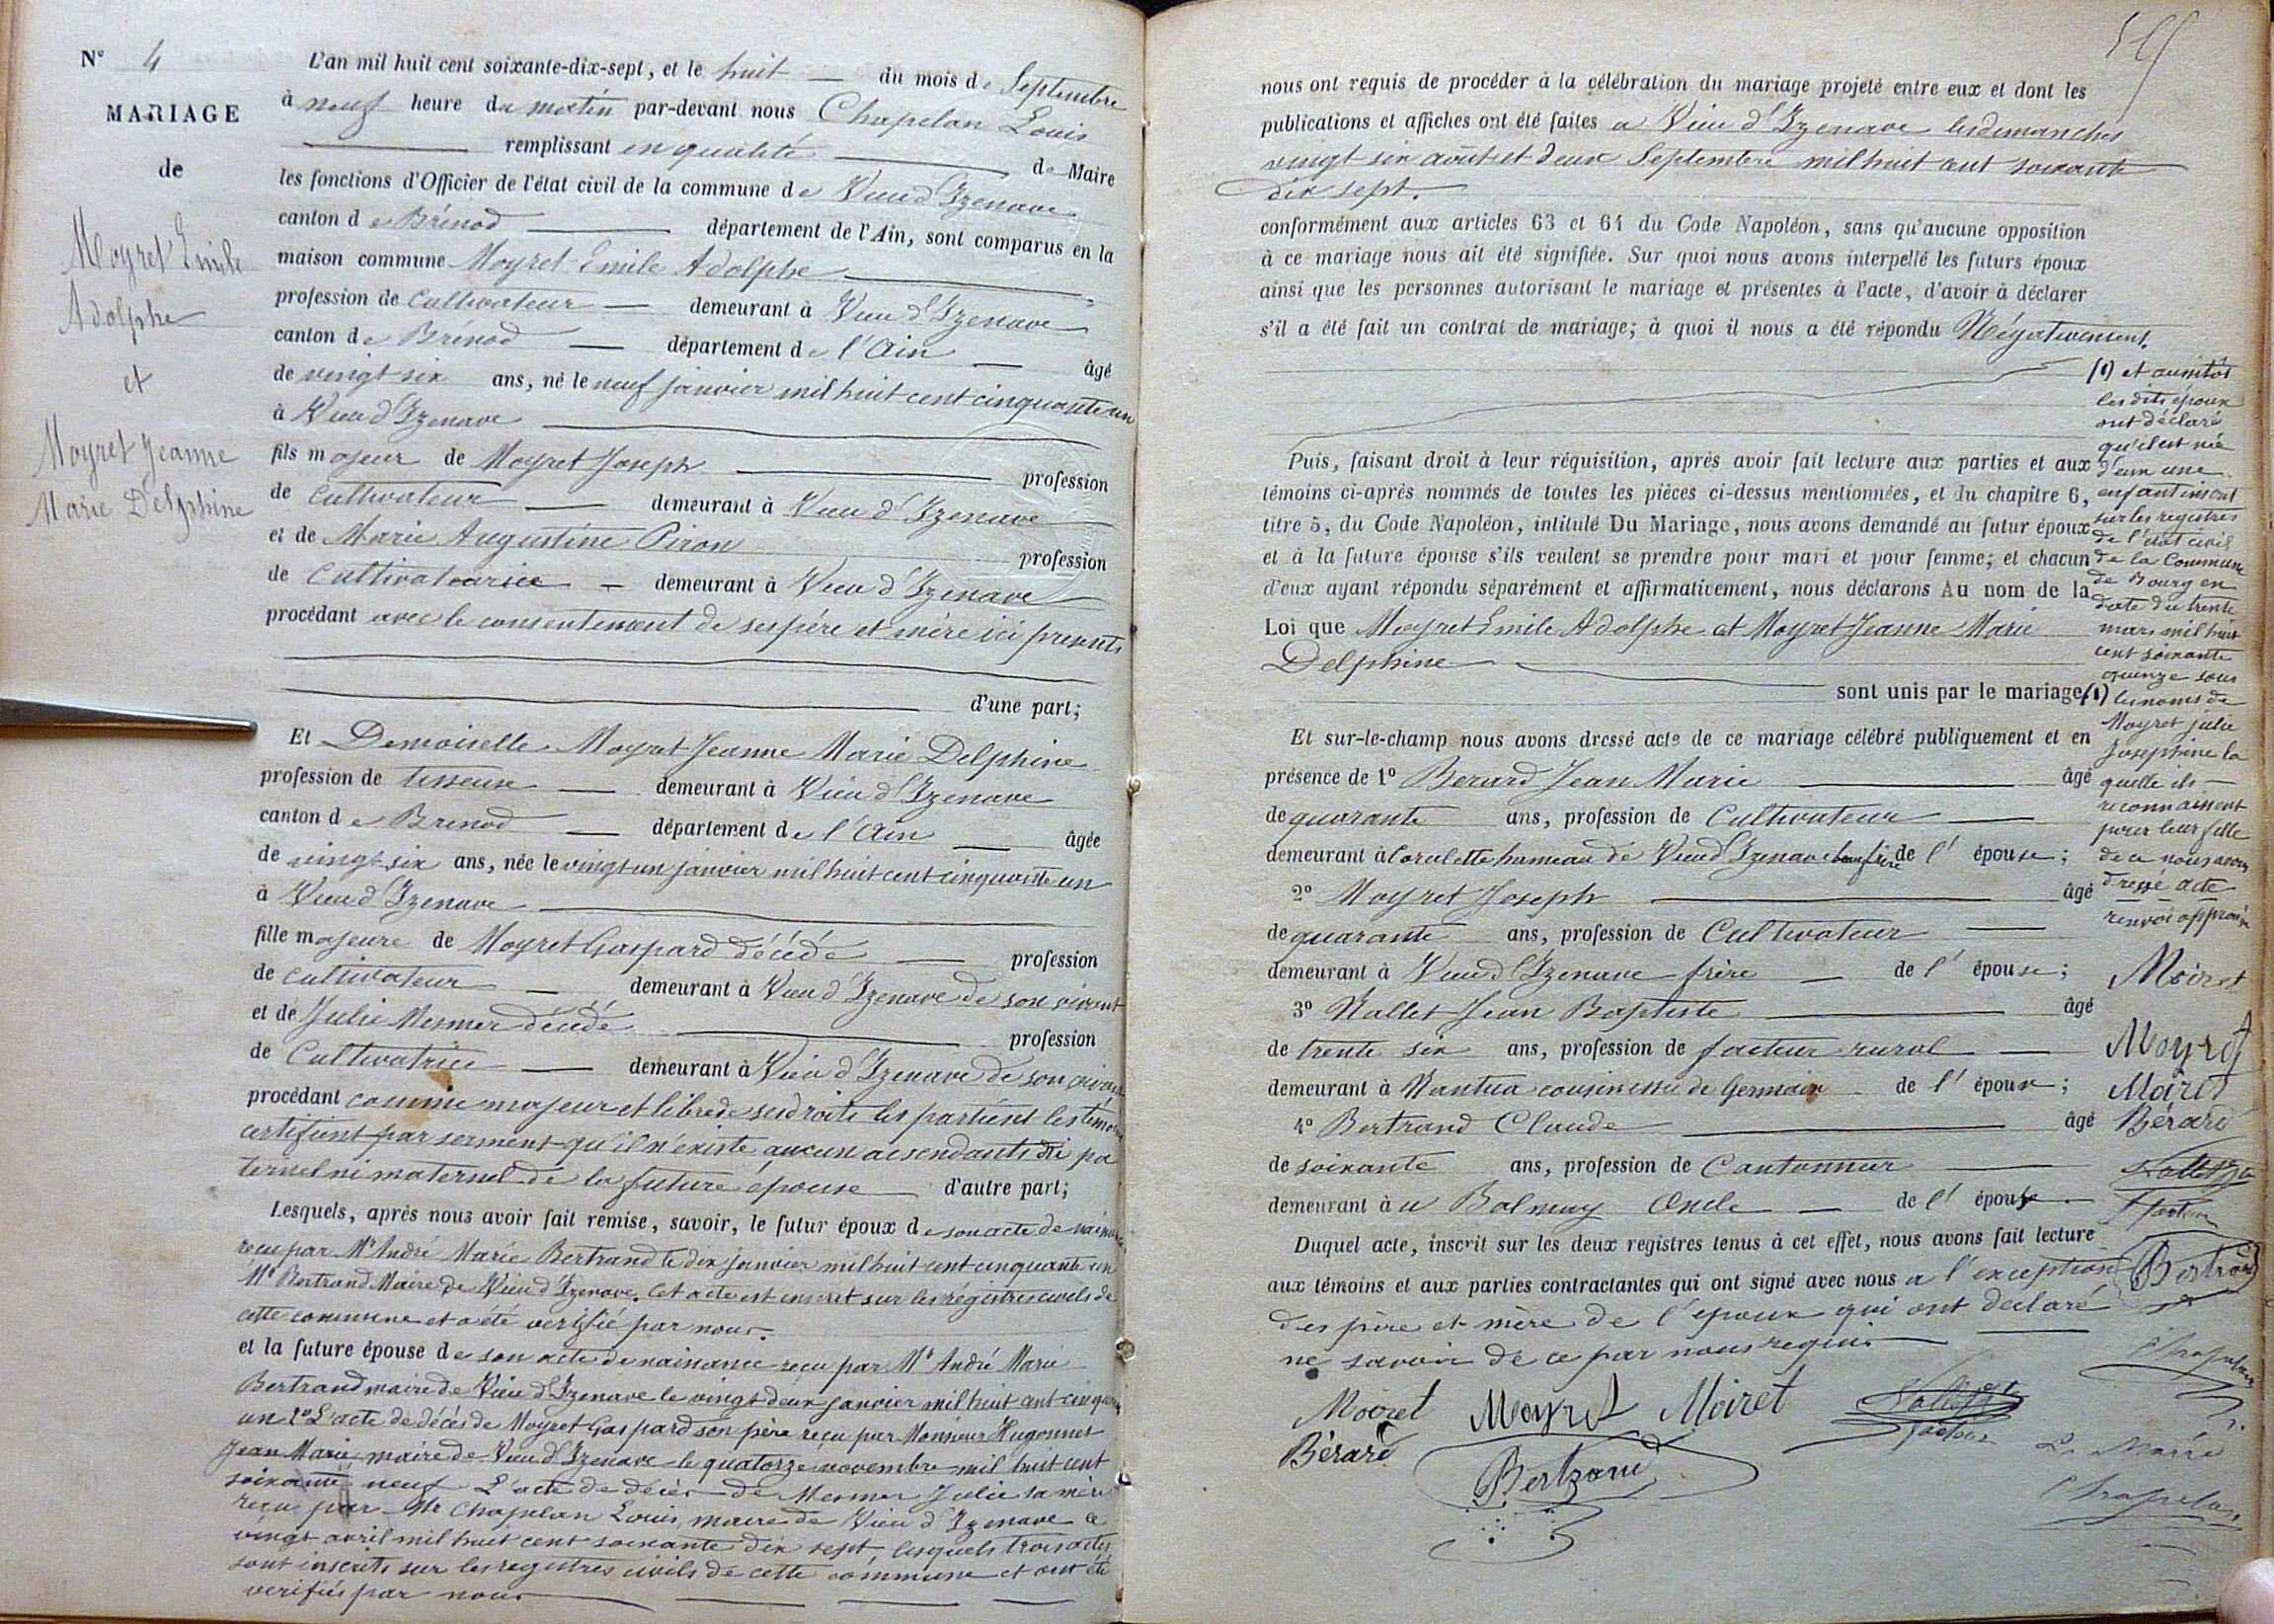 N° 4
MARIAGE
de
Moyret Emile
Adolphe
et
Moyret Jeanne
Marie Delphine
L'an mil huit cent soixante-dix-sept, et le huit du mois de Septembre
à neuf heure du matin par-devant nous Chapelan Louis
remplissant en qualité de Maire
les fonctions d'Officier de l'état civil de la commune de Vieu d'Izenave
canton de Brénod département de l'Ain, sont comparus en la
maison commune Moyret Emile Adolphe
profession de Cultivateur demeurant à Vieu d'Izenave
canton de Brénod département de l'Ain âgé
de vingt six ans, né le neuf janvier mil huit cent cinquante un
à Vieu d'Izenave
fils majeur de Moyret Joseph profession
de Cultivateur demeurant à Vieu d'Izenave
et de Marie Augustine Piron profession
de Cultivatrice demeurant à Vieu d'Izenave
procédant avec le consentement de ses père et mère ici présents
d'une part;
Et Demoiselle Moyret Jeanne Marie Delphine
profession de tisseuse demeurant à Vieu d'Izenave
canton de Brenod département de l'Ain âgée
de vingt six ans, née le vingt un janvier mil huit cent cinquante un
à Vieu d'Izenave
fille majeure de Moyret Gaspard décédé profession
de cultivateur demeurant à Vieu d'Izenave de son vivant
et de Julie Mermer décédé profession
de Cultivatrice demeurant à Vieu d'Izenave de son vivant
procédant comme majeur et libre de ses droits les parties et les témoins
certifient par serment qu'il n'existe aucun acsendants ni pa
ternel ni maternel de la future épouse d'autre part;
Lesquels, après nous avoir fait remise, savoir, le futur époux de son acte de naissance
reçu par Mr André Marie Bertrand le dix janvier mil huit cent cinquante un
Mr Bertrand Maire de Vieu d'Izenave. Cet acte est inscrit sur les régistres civils de
cette commune et a été vérifié par nous.
et la future épouse de son acte de naissance reçu par Mr André Marie
Bertrand maire de Vieu d'Izenave le vingt deux janvier mil huit cent cinquante
un 2° L'acte de décès de Moyret Gaspard son père reçu par Monsieur Hugonnet
Jean Marie maire de Vieu d'Izenave le quatorze novembre mil huit cent
soixante neuf L'acte de décès de Mermer Julie sa mère
reçu par Mr Chapelan Louis, maire de Vieu d'Izenave le
vingt avril mil huit cent soixante dix sept, lesquels trois actes
sont inscrits sur les registres civils de cette commune et ont été
verifiés par nous
nous ont requis de procéder à la célébration du mariage projeté entre eux et dont les
publications et affiches ont été faites a Vieu d'Izenave les dimanches
vingt six août et deux Septembre mil huit cent soixante
dix sept.
conformément aux articles 63 et 64 du Code Napoléon, sans qu'aucune opposition
à ce mariage nous ait été signifiée. Sur quoi nous avons interpellé les futurs époux
ainsi que les personnes autorisant le mariage et présentes à l'acte, d'avoir à déclarer
s'il a été fait un contrat de mariage; à quoi il nous a été répondu Négativement.
Puis, faisant droit à leur réquisition, après avoir fait lecture aux parties et aux
témoins ci-après nommés de toutes les pièces ci-dessus mentionnées, et du chapitre 6,
titre 5, du Code Napoléon, intitulé Du Mariage, nous avons demandé au futur époux
et à la future épouse s'ils veulent se prendre pour mari et pour femme; et chacun
d'eux ayant répondu séparément et affirmativement, nous déclarons Au nom de la
Loi que Moyret Emile Adolphe et Moyret Jeanne Marie
Delphine
sont unis par le mariage (1)
Et sur-le-champ nous avons dressé acte de ce mariage célébré publiquement et en
présence de 1° Berard Jean Marie âgé
de quarante ans, profession de Cultivateur
demeurant à Corcelette hameau de Vieu d'Izenave beau frère de l'épouse;
2° Moyret Joseph âgé
de quarante ans, profession de Cultivateur
demeurant à Vieu d'Izenave frère de l'épouse;
3° Nallet Jean Baptiste âgé
de trente six ans, profession de facteur rural
demeurant à Nantua cousin issu de Germain de l'époux;
4° Bertrand Claude âgé
de soixante ans, profession de Cantonnier
demeurant à a Balmay Oncle de l'époux
Duquel acte, inscrit sur les deux registres tenus à cet effet, nous avons fait lecture
aux témoins et aux parties contractantes qui ont signé avec nous a l'exception
des père et mère de l'époux qui ont declaré
ne savoir de ce par nous requis
Moiret Moyret Moiret Nallet
facteur
Bérard
Bertrand
Le Maire
Chapelan
(1) et aussitôt
les dits époux
ont déclaré
qu'il est née
d'eux une
enfant inscrit
sur les registres
de l'état civil
de la Commune
de Bourg en
date du trente
mars mil huit
cent soixante
quinze sous
les noms de
Moyret julie
Josephine la
quelle ils
reconnaissent
pour leur fille
de ce nous avons
dressé acte
renvoi approuvé
Moiret
Moyret
Moiret
Bérard
Nallet
facteur
Bertrand
Chapelan